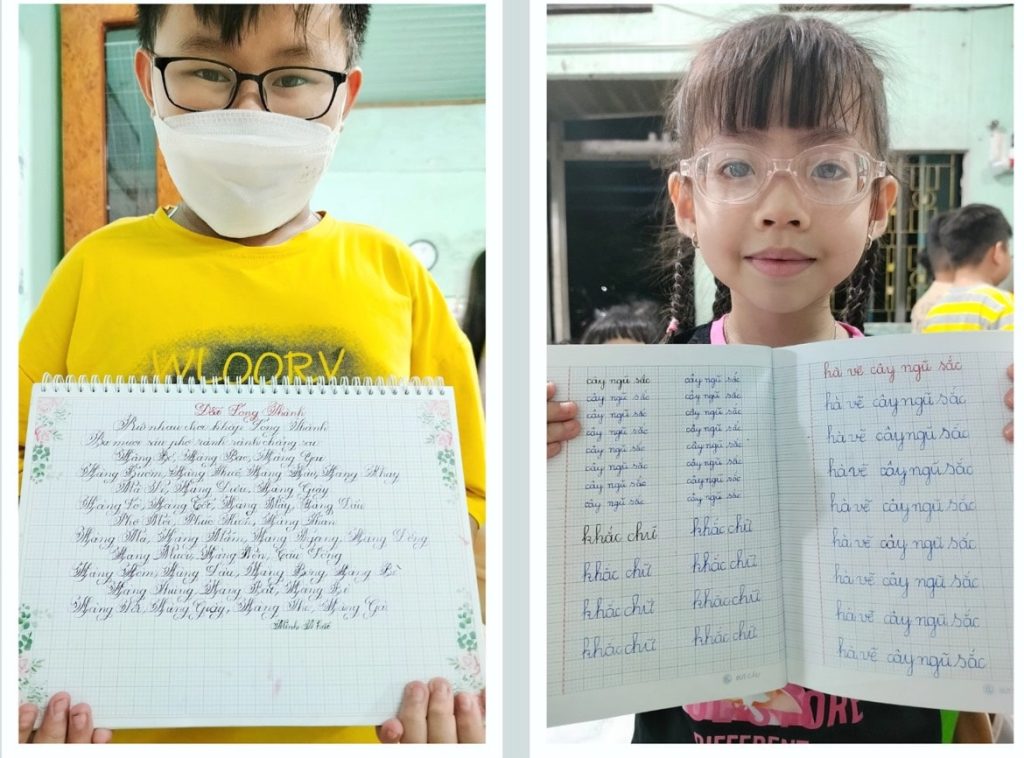 WLOORY
Long Thành
Rủ nhau chơi khắp Long Thành
Ba mươi sáu phố rành rành chẳng sai
Hàng Bồ, Hàng Bạc, Hàng Gai
Hàng Buồm, Hàng Thiếc, Hàng Hài, Hàng Khay
Mã Vĩ, Hàng Điếu, Hàng Giày
Hàng Lờ, Hàng Cót, Hàng Mây, Hàng Đàn
Phố Mới, Phúc Kiến, Hàng Than
Hàng Mã, Hàng Mắm, Hàng Ngang, Hàng Đồng
Hàng Muối, Hàng Nón, Cầu Đông
Hàng Hòm, Hàng Đậu, Hàng Bông, Hàng Bè
Hàng Thùng, Hàng Bát, Hàng
Hàng Vôi, Hàng Giấy, Hàng The, Hàng Gà
Minh
cây ngũ sắc cây ngũ sắc
cây ngũ sắc cây ngũ sắc
cây ngũ sắc cây ngũ sắc
cây ngũ sắc cây ngũ sắc
cây ngũ sắc cây ngũ sắc
cây ngũ sắc cây ngũ sắc
cây ngũ sắc cây ngũ sắc
cây ngũ sắc cây ngũ sắc
khắc chữ khắc chữ
khắc chữ khắc chữ
khắc chữ khắc chữ
khắc chữ khắc chữ
hà vẽ cây ngũ sắc
hà vẽ cây ngũ sắc
hà vẽ cây ngũ sắc
hà vẽ cây ngũ sắc
hà vẽ cây ngũ sắc
hà vẽ cây ngũ sắc
hà vẽ cây ngũ sắc
hà vẽ cây ngũ sắc
hà vẽ cây ngũ sắc
DIFFERENT